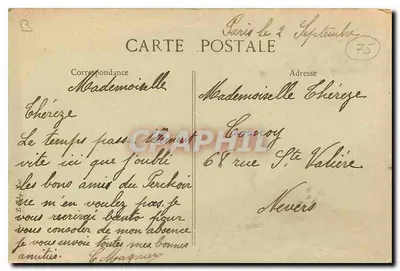 Paris le 2 Septembre
B
75
CARTE POSTALE
Correspondance
Adresse
Mademoiselle
Thérèze
Le temps passe
vite ici que j'oublie
les bons amis du Perchoir
ne m'en voulez pas je
vous recrirai bientot pour
vous consoler de mon absence
je vous envoi toutes mes bonnes
amitiés.
Mademoiselle Thérèze
68 rue Ste Valière
Nevers
CPHIL